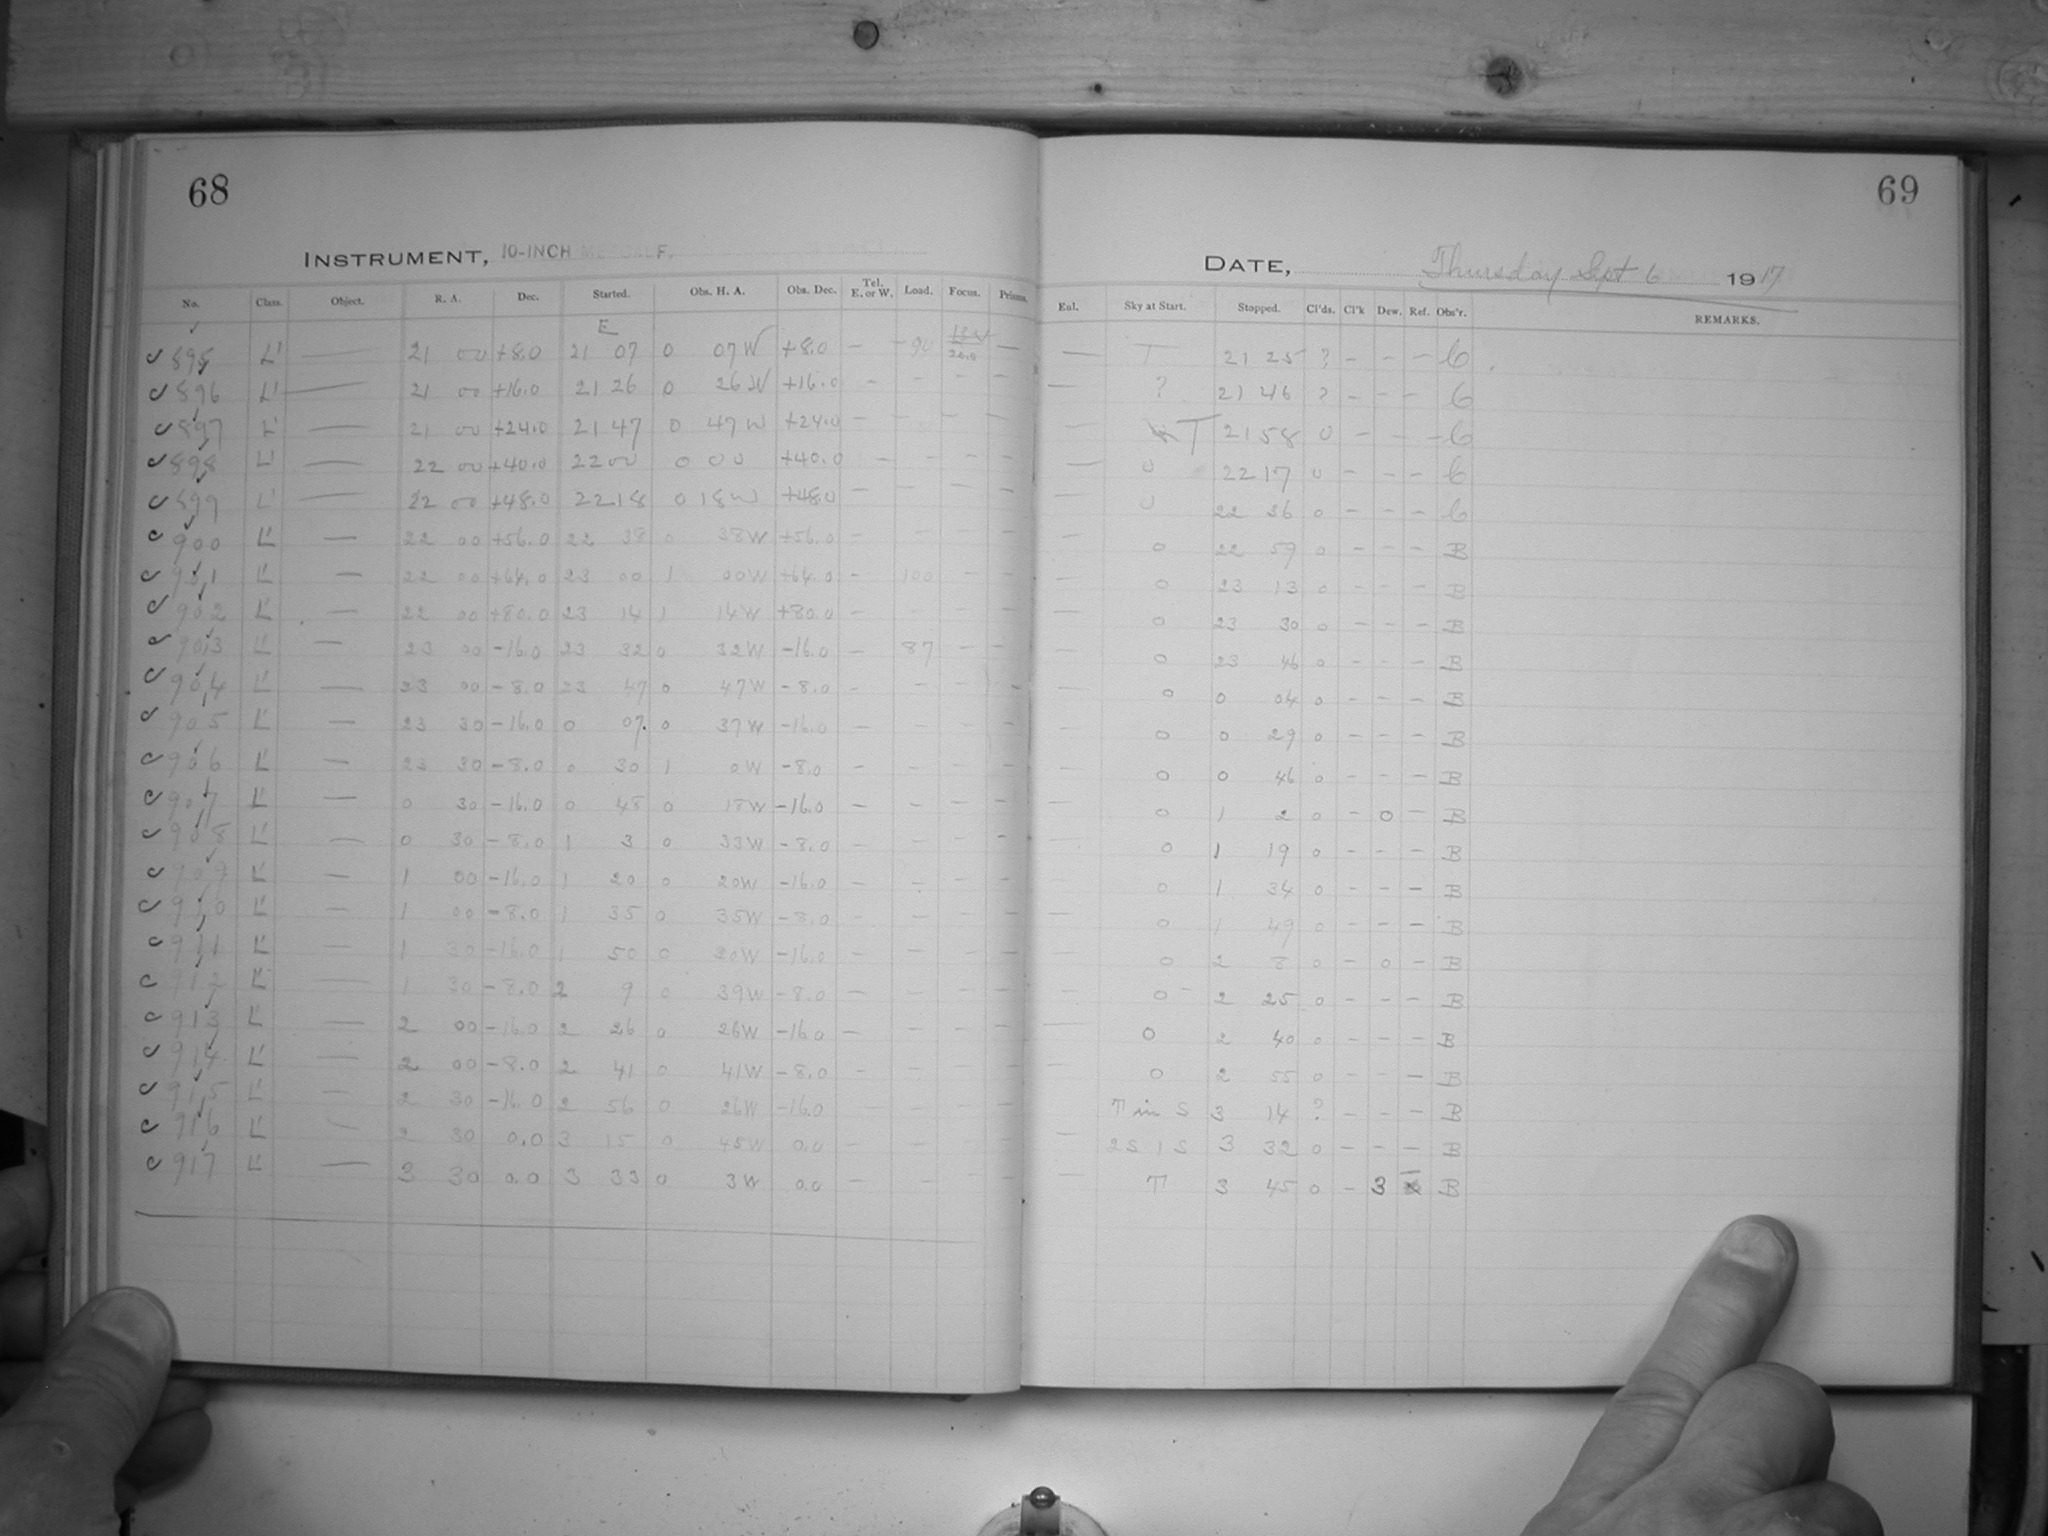 68
69
INSTRUMENT, 10-INCH METCALF.
DATE, Thursday Sept 6 1917
No. Class. Object. R. A. Dec. Started. Obs. H. A. Obs. Dec. Tel. E. or W. Load. Focus. Prisms. Eul. Sky at Start. Stopped. Cl'ds. Cl'k Dew. Ref. Obs'r. REMARKS.
E
895 L' — 21 00 +8.0 21 07 0 07 W +8.0 — 90 — — T 21 25 ? - - - C
896 L' — 21 00 +16.0 21 26 0 26 W +16.0 - - - - — ? 21 46 ? - - - C
897 L' — 21 00 +24.0 21 47 0 47 W +24.0 - - - - — T 21 58 0 - - - C
898 L' — 22 00 +40.0 22 00 0 00 +40.0 - - - - — 0 22 17 0 - - - C
899 L' — 22 00 +48.0 22 18 0 18 W +48.0 - - - - — 0 22 36 0 - - - C
900 L' — 22 00 +56.0 22 38 0 38 W +56.0 - - - - — 0 22 59 0 - - - B
901 L' — 22 00 +64.0 23 00 1 00 W +64.0 - 100 - - — 0 23 13 0 - - - B
902 L' — 22 00 +80.0 23 14 1 14 W +80.0 - - - - — 0 23 30 0 - - - B
903 L' — 23 00 -16.0 23 32 0 32 W -16.0 - 87 - - — 0 23 46 0 - - - B
904 L' — 23 00 -8.0 23 47 0 47 W -8.0 - - - - — 0 0 04 0 - - - B
905 L' — 23 30 -16.0 0 07 0 37 W -16.0 - - - - — 0 0 29 0 - - - B
906 L' — 23 30 -8.0 0 30 1 0 W -8.0 - - - - — 0 0 46 0 - - - B
907 L' — 0 30 -16.0 0 48 0 18 W -16.0 - - - - — 0 1 2 0 - 0 - B
908 L' — 0 30 -8.0 1 3 0 33 W -8.0 - - - - — 0 1 19 0 - - - B
909 L' — 1 00 -16.0 1 20 0 20 W -16.0 - - - - — 0 1 34 0 - - - B
910 L' — 1 00 -8.0 1 35 0 35 W -8.0 - - - - — 0 1 49 0 - - - B
911 L' — 1 30 -16.0 1 50 0 20 W -16.0 - - - - — 0 2 8 0 - 0 - B
912 L' — 1 30 -8.0 2 9 0 39 W -8.0 - - - - — 0 2 25 0 - - - B
913 L' — 2 00 -16.0 2 26 0 26 W -16.0 - - - - — 0 2 40 0 - - - B
914 L' — 2 00 -8.0 2 41 0 41 W -8.0 - - - - — 0 2 55 0 - - - B
915 L' — 2 30 -16.0 2 56 0 26 W -16.0 - - - - T in S 3 14 ? - - - B
916 L' — 2 30 0.0 3 15 0 45 W 0.0 - - - - — 2 S 1 S 3 32 0 - - - B
917 L' — 3 30 0.0 3 33 0 3 W 0.0 - - - - — T 3 45 0 - 3 - B